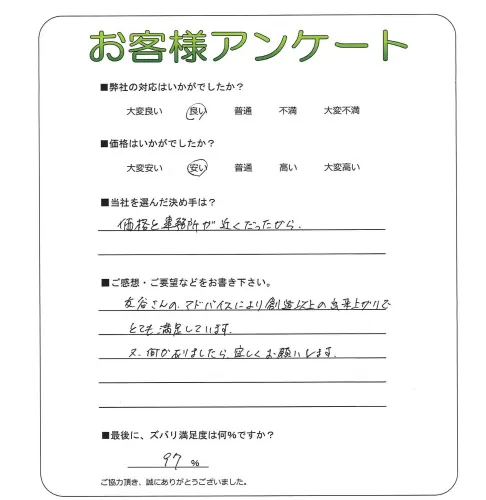 お客様アンケート
■弊社の対応はいかがでしたか？
大変良い 良い 普通 不満 大変不満
■価格はいかがでしたか？
大変安い 安い 普通 高い 大変高い
■当社を選んだ決め手は？
価格と事務所が近くだったから、
■ご感想・ご要望などをお書き下さい。
友谷さんの、アドバイスにより創造以上の出来上がりで
とても満足しています。
又、何かありましたら、宜しくお願いします。
■最後に、ズバリ満足度は何%ですか？
97 %
ご協力頂き、誠にありがとうございました。